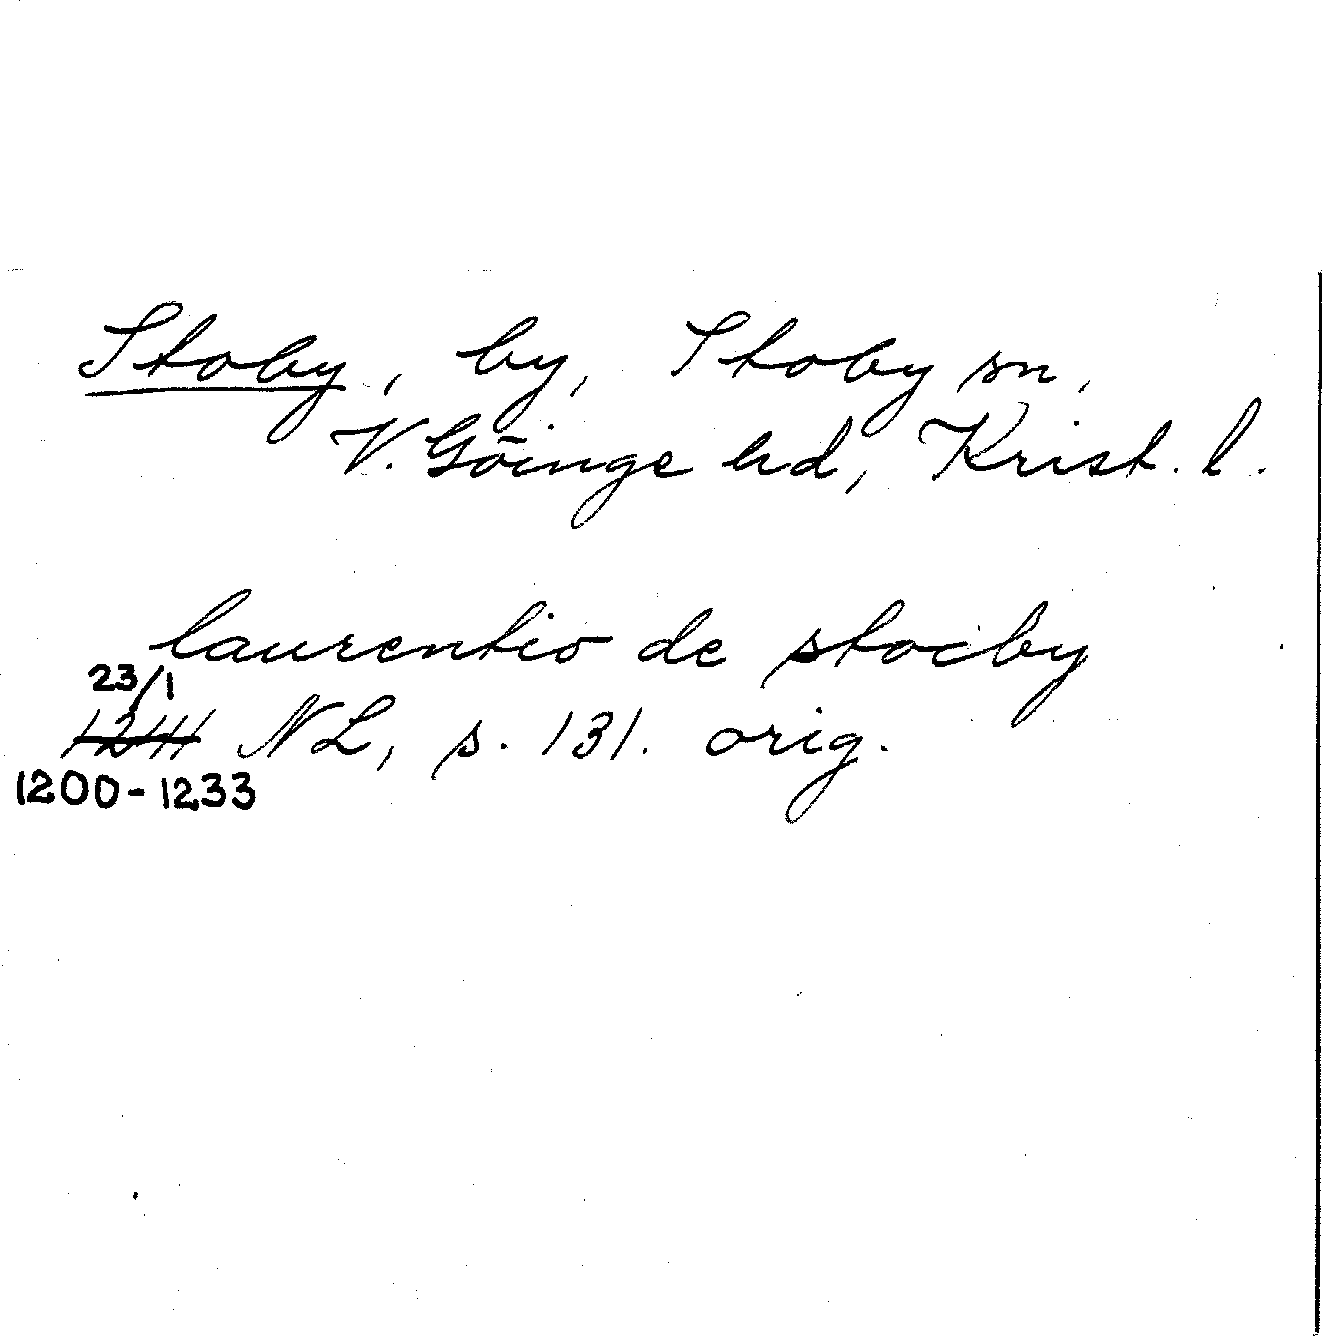 Stoby, by, Stoby sn,
V. Göinge hd, Krist. l.
laurentio de stociby
23/1
1241 NL, s. 131. orig.
1200-1233